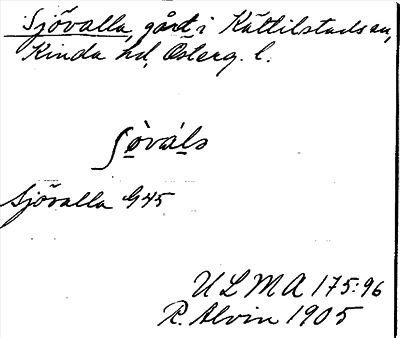 Sjövalla, gård i Kättilstads sn,
Kinda hd, Österg. l.
ʃòválа
Sjövalla G45
ULMA 175:96
R. Alvin 1905